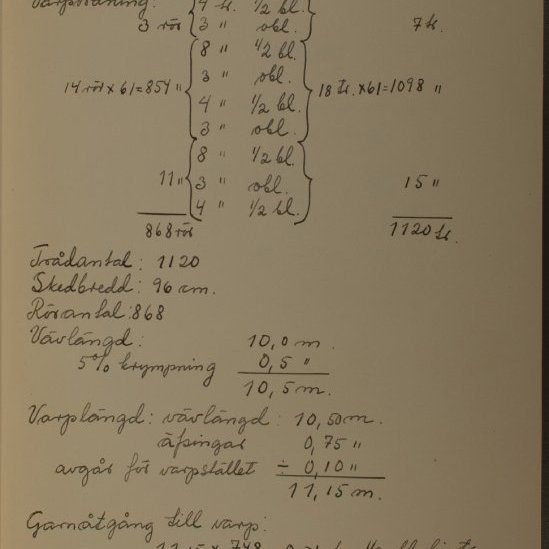 Varpordning: 4 tr. 1/2 bl.
3 rör 3 " obl. 7 tr.
8 " 1/2 bl.
3 " obl.
14 rör x 61 = 854 " 4 " 1/2 bl. 18 tr. x 61 = 1098 "
3 " obl.
8 " 1/2 bl.
11 " 3 " obl. 15 "
4 " 1/2 bl.
868 rör 1120 tr.
Trådantal: 1120
Skedbredd: 96 cm.
Rörantal: 868
Vävlängd: 10,0 m.
5% krympning 0,5 "
10,5 m.
Varplängd: vävlängd: 10,50 m.
äfsingar 0,75 "
avgår för varpstället ÷ 0,10 "
11,15 m.
Garnåtgång till varp: